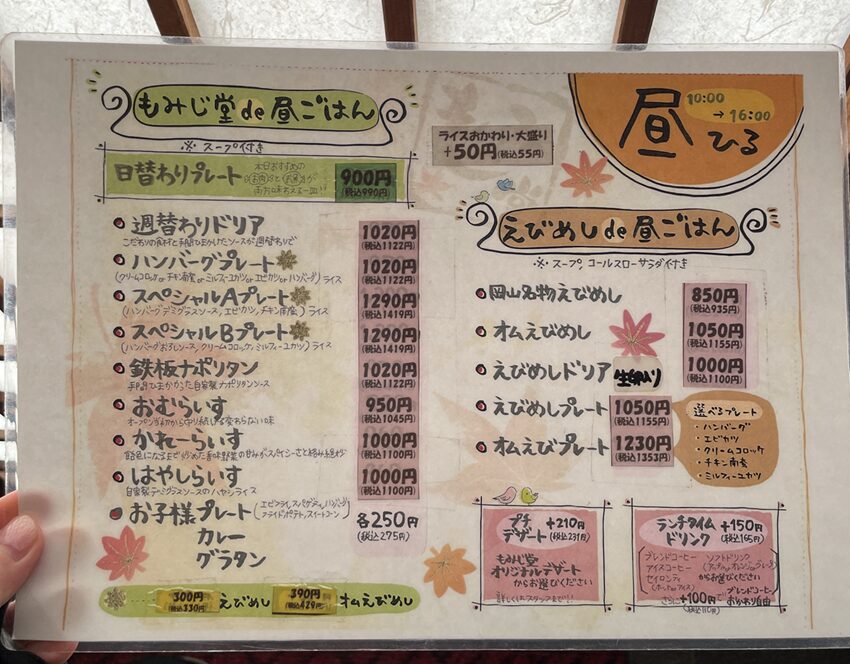 もみじ堂 de 昼ごはん
※ スープ付き
日替わりプレート
本日おすすめの
900円
(税込990円)
週替わりドリア
1020円
(税込1122円)
ハンバーグプレート
(クリームコロッケ or チキン南蛮 or ミルフィーユカツ or エビカツ or ハンバーグ) ライス
1020円
(税込1122円)
スペシャルAプレート
(ハンバーグデミグラスソース、エビカツ、チキン南蛮) ライス
1290円
(税込1419円)
スペシャルBプレート
(ハンバーグおろしソース、クリームコロッケ、ミルフィーユカツ) ライス
1290円
(税込1419円)
鉄板ナポリタン
手間ひまかかった自家製ナポリタンソース
1020円
(税込1122円)
おむらいす
オープン当初から守り続ける変わらない味
950円
(税込1045円)
かれーらいす
1000円
(税込1100円)
はやしらいす
自家製デミグラスソースのハヤシライス
1000円
(税込1100円)
お子様プレート
(エビフライ、スパゲティ、ハンバーグ
フライドポテト、スイートコーン)
カレー
グラタン
各250円
(税込275円)
300円
(税込330円)
えびめし
390円
(税込429円)
オムえびめし
ライスおかわり・大盛り
+50円(税込55円)
昼 ひる
10:00
→16:00
えびめし de 昼ごはん
※ スープ、コールスローサラダ付き
岡山名物えびめし
850円
(税込935円)
オムえびめし
1050円
(税込1155円)
えびめしドリア
1000円
(税込1100円)
えびめしプレート
1050円
(税込1155円)
オムえびプレート
1230円
(税込1353円)
選べるプレート
・ハンバーグ
・エビカツ
・クリームコロッケ
・チキン南蛮
・ミルフィーユカツ
プチ
デザート
+210円
(税込231円)
もみじ堂
オリジナルデザート
からお選びください
詳しくはスタッフまで!!
ランチタイム
ドリンク
+150円
(税込165円)
ブレンドコーヒー ソフトドリンク
アイスコーヒー
セイロンティ
(ホットorアイス)
からお選びください
さらに +100円で
(税込110円)
ブレンドコーヒー
おかわり自由